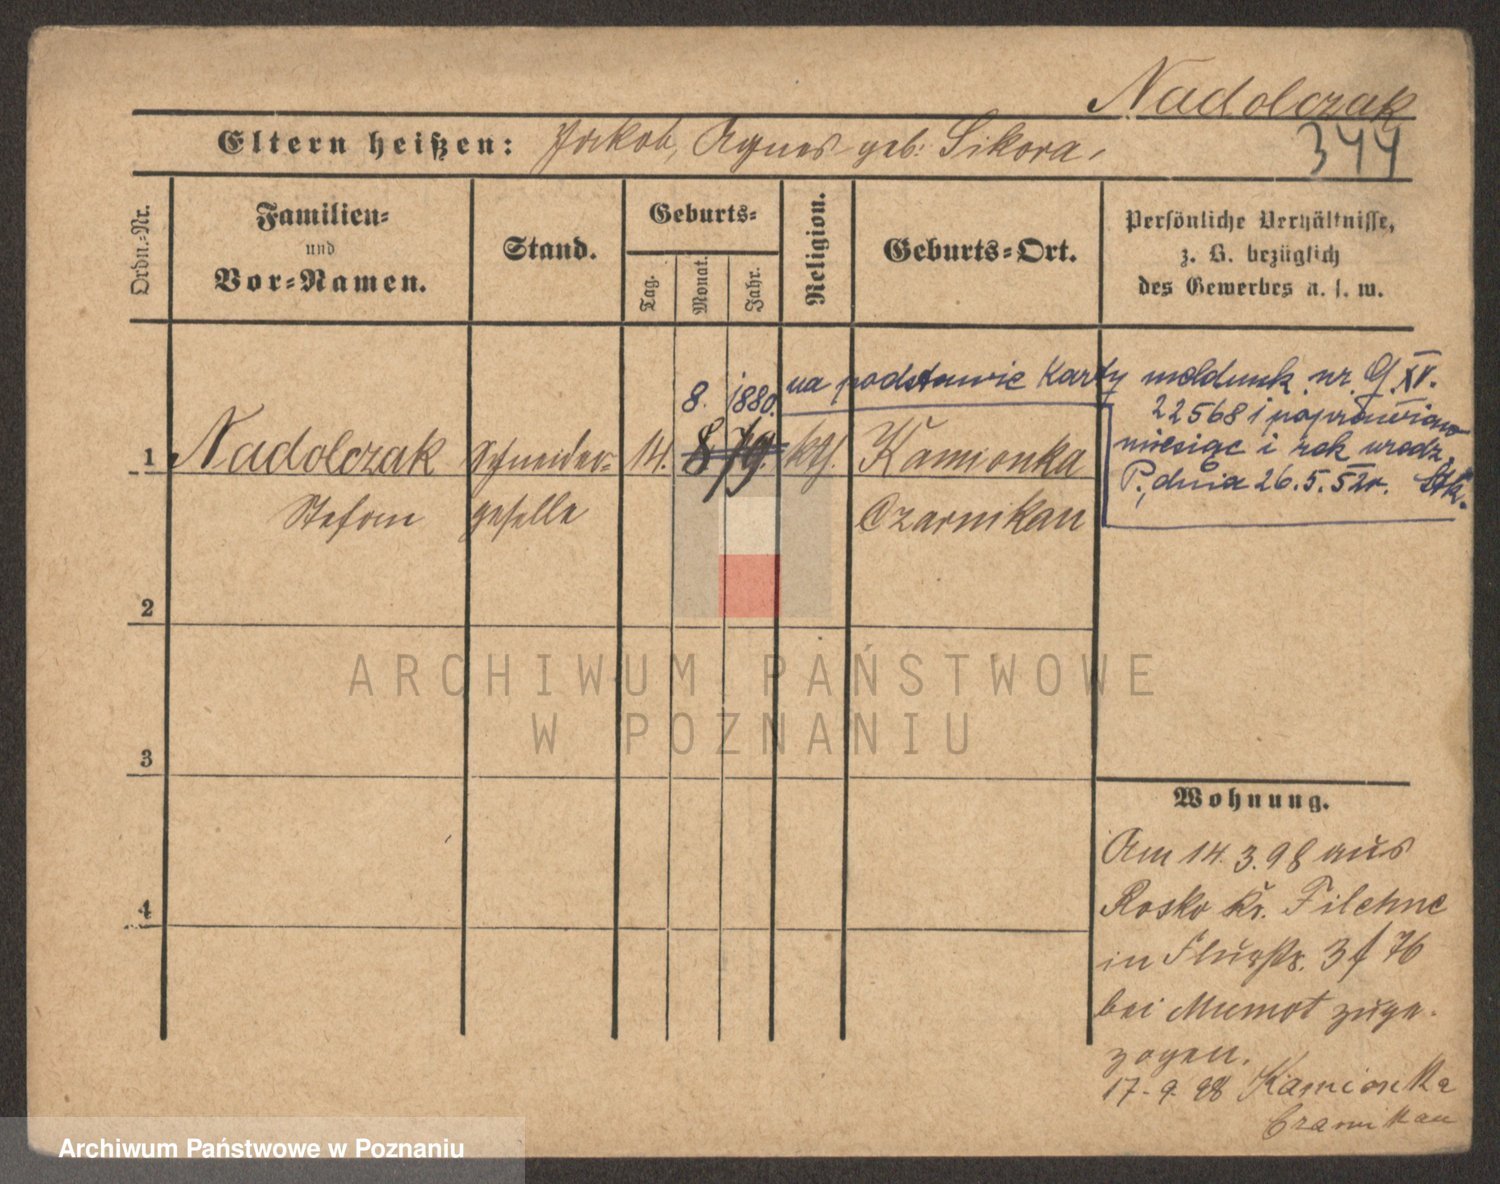 Nadolczak
Eltern heißen: Jakob, Agnes geb. Sikora.
344
Ordn.-Nr.
Familien-
und
Vor-Namen.
Stand.
Geburts-
Tag.
Monat.
Jahr.
Religion.
Geburts-Ort.
Persönliche Verhältnisse,
z. B. bezüglich
des Gewerbes u. s. w.
8. 1880. na podstawie Karty meldunk. nr. G XV.
22568 i poprawiono
miesiąc i rok urodz.
P., dnia 26.5.52r.
1 Nadolczak Schneider- 14. 8 79. kth. Kamionka
Stefan geselle Czarnikau
2
3
4
Wohnung.
Am 14.3.98 aus
Rosko Kr. Filehne
in 3 f 76
bei Mumot zuge-
zogen.
17.9.98 Kamionka
Czarnikau
ARCHIWUM PAŃSTWOWE
W POZNANIU
Archiwum Państwowe w Poznaniu